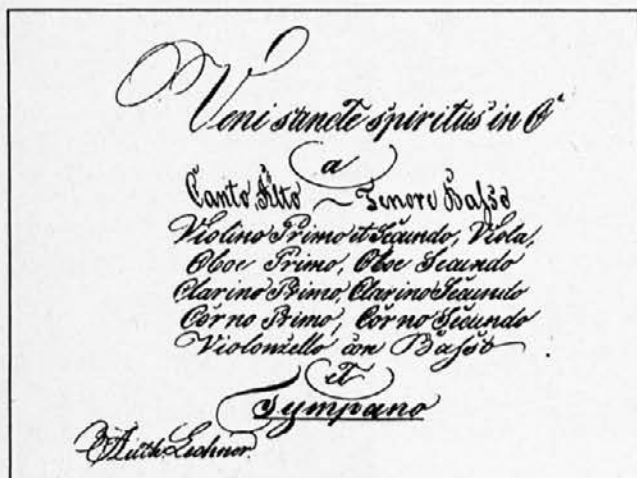 Veni sancte spiritus in C
a
Canto, Alto ~ Tenore Baſso
Violino Primo et Secundo, Viola,
Oboe Primo, Oboe Secundo
Clarino Primo, Clarino Secundo
Corno Primo, Corno Secundo
Violonzello con Baſso
et
Tympano
Lechner